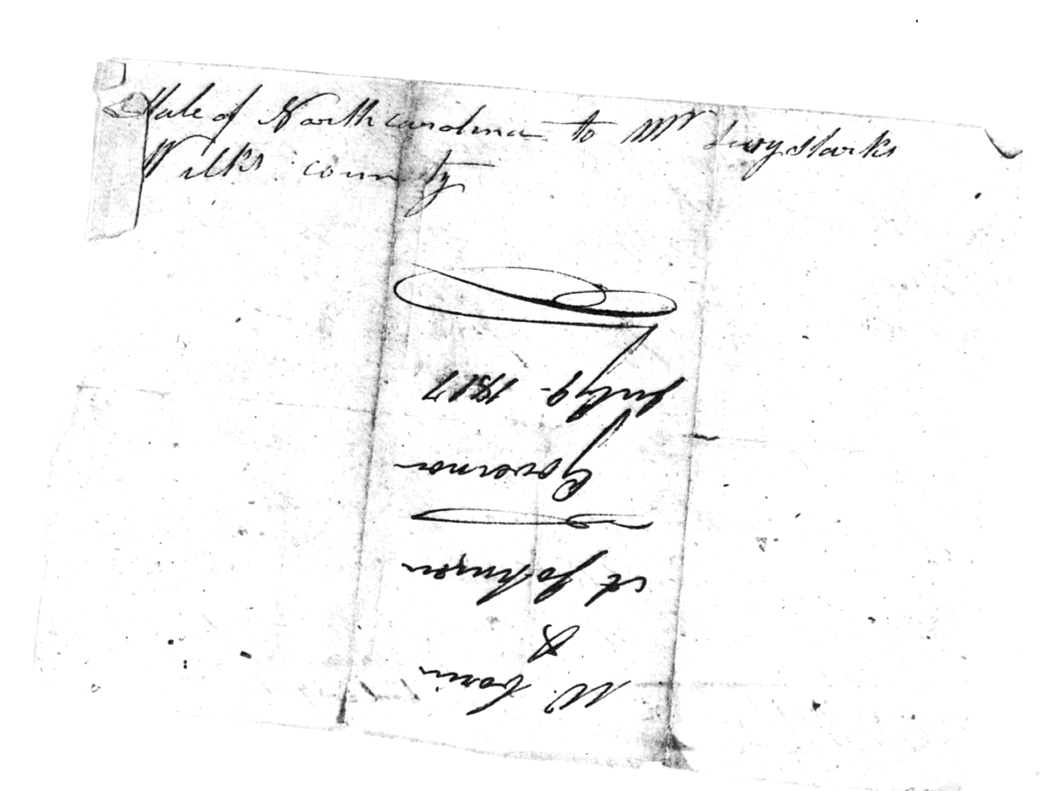 State of North carolina to Mr Levy Starks
Wilks county
W. Cozin
&
A Johnson
Governor
July 9 1817